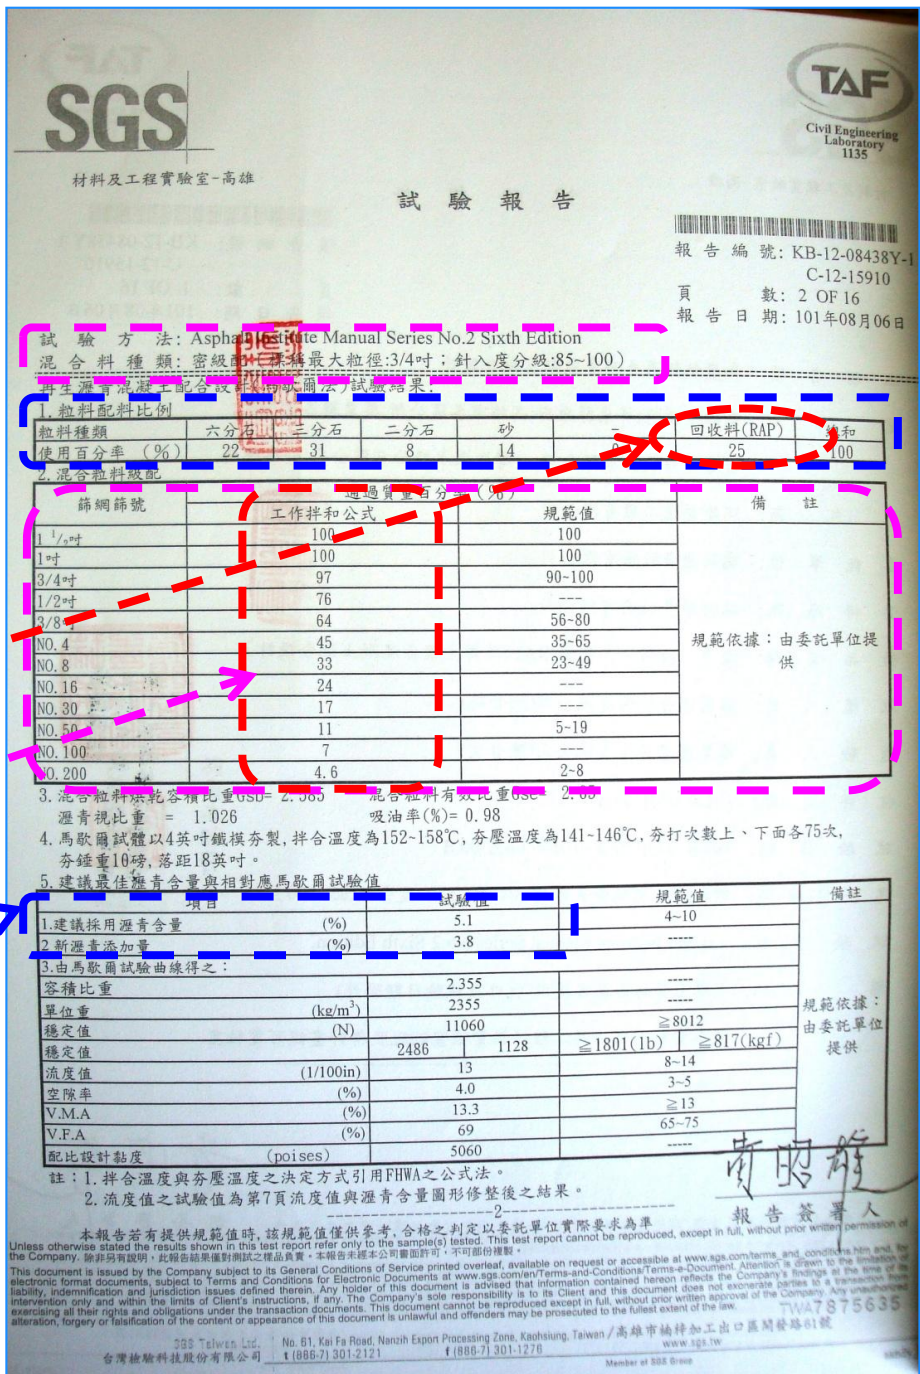 SGS
TAF
Civil Engineering
Laboratory
1135
材料及工程實驗室-高雄
試驗報告
報告編號: KB-12-08438Y-1
C-12-15910
頁數: 2 OF 16
報告日期: 101年08月06日
試驗方法: Asphalt Institute Manual Series No.2 Sixth Edition
混合料種類: 密級配 標稱最大粒徑:3/4吋；針入度分級:85~100)
再生瀝青混凝土配合設計(馬歇爾法)試驗結果:
1.粒料配料比例
粒料種類 六分石 三分石 二分石 砂 - 回收料(RAP) 總和
使用百分率 (%) 22 31 8 14 25 100
2.混合粒料級配
篩網篩號 通過質量百分率(%) 備註
工作拌和公式 規範值
1 1/2吋 100 100
1吋 100 100
3/4吋 97 90~100
1/2吋 76 ---
3/8吋 64 56~80
NO.4 45 35~65 規範依據：由委託單位提
NO.8 33 23~49 供
NO.16 24 ---
NO.30 17 ---
NO.50 11 5~19
NO.100 7 ---
NO.200 4.6 2~8
3.混合粒料烘乾容積比重Gsb= 2.585 混合粒料有效比重Gse= 2.65
瀝青視比重 = 1.026 吸油率(%)= 0.98
4.馬歇爾試體以4英吋鐵模夯製,拌合溫度為152~158℃,夯壓溫度為141~146℃,夯打次數上、下面各75次,
夯錘重10磅,落距18英吋。
5.建議最佳瀝青含量與相對應馬歇爾試驗值
項目 試驗值 規範值 備註
1.建議採用瀝青含量 (%) 5.1 4~10
2.新瀝青添加量 (%) 3.8 -----
3.由馬歇爾試驗曲線得之：
容積比重 2.355 -----
單位重 (kg/m³) 2355 ----- 規範依據：
穩定值 (N) 11060 ≧8012 由委託單位
穩定值 2486 1128 ≧1801(lb) ≧817(kgf) 提供
流度值 (1/100in) 13 8~14
空隙率 (%) 4.0 3~5
V.M.A (%) 13.3 ≧13
V.F.A (%) 69 65~75
配比設計黏度 (poises) 5060 -----
註：1.拌合溫度與夯壓溫度之決定方式引用FHWA之公式法。
2.流度值之試驗值為第7頁流度值與瀝青含量圖形修整後之結果。
-2-
報告簽署人
本報告若有提供規範值時,該規範值僅供參考,合格之判定以委託單位實際要求為準
Unless otherwise stated the results shown in this test report refer only to the sample(s) tested. This test report cannot be reproduced, except in full, without prior written permission of
the Company. 除非另有說明，此報告結果僅對測試之樣品負責。本報告未經本公司書面許可，不可部份複製。
This document is issued by the Company subject to its General Conditions of Service printed overleaf, available on request or accessible at www.sgs.com/terms_and_conditions.htm and, for
electronic format documents, subject to Terms and Conditions for Electronic Documents at www.sgs.com/en/Terms-and-Conditions/Terms-e-Document. Attention is drawn to the limitation of
liability, indemnification and jurisdiction issues defined therein. Any holder of this document is advised that information contained hereon reflects the Company's findings at the time of its
intervention only and within the limits of Client's instructions, if any. The Company's sole responsibility is to its Client and this document does not exonerate parties to a transaction from
exercising all their rights and obligations under the transaction documents. This document cannot be reproduced except in full, without prior written approval of the Company. Any unauthorized
alteration, forgery or falsification of the content or appearance of this document is unlawful and offenders may be prosecuted to the fullest extent of the law.
TWA7875635
SGS Taiwan Ltd. No. 61, Kai Fa Road, Nanzih Export Processing Zone, Kaohsiung, Taiwan /高雄市楠梓加工出口區開發路61號
台灣檢驗科技股份有限公司 t (886-7) 301-2121 f (886-7) 301-1276 www.sgs.tw
Member of SGS Group